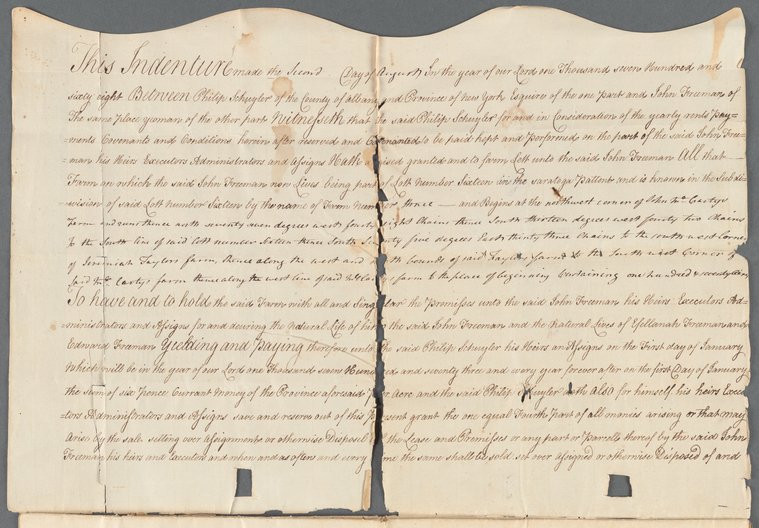 This Indenture made the Second Day of August In the year of our Lord one Thousand seven Hundred and
sixty eight Between Philip Schuyler of the County of Albany and Province of New York Esquire of the one part and John Freeman of
The same place yeoman of the other part Witnesseth that the said Philip Schuyler for and in Consideration of the yearly rents Pay=
=ments Covenants and Conditions herein after reserved and Covenanted to be paid kept and performed on the part of the said John Free=
=man his Heirs Executors Administrators and Assigns Hath ised granted and to farm Lett unto the said John Freeman All that
Farm on which the said John Freeman now Lives being part of Lott Number Sixteen in the saratoga Pattent and is known in the Subde=
=vision of said Lott number Sixteen by the name of Farm Number three and Begins at the northwest corner of John Mc Cartys
Farm and runs thence north seventy seven degrees west fourty eight Chains thence South thirteen degrees west fourty two Chains
to the South line of said Lott number Sixteen thence South ty five degrees East thirty three Chains to the south west Corner
of Jeremiah Taylors farm, thence along the west and north bounds of said Taylors farm to the South west Corner of
said Mc Cartys farm thence along the west line of said Mc Cartys farm to the place of beginning Containing one hundred & seventy
To have and to hold the said Farm with all and Singular the Premises unto the said John Freeman his Heirs Executors Ad=
=ministrators and Assigns for and during the Natural Life of him the said John Freeman and the Natural Lives of Freeman and
Edward Freeman Yielding and Paying therefore unto the said Philip Schuyler his Heirs an Assigns on the First day of January
Which will be in the year of our Lord one Thousand seven Hundred and seventy three and every year forever after on the first Day of January
the sum of six Pence Currant money of the Province aforesaid Per Acre and the said Philip Schuyler doth Also for himself his heirs Execu=
=tors Administrators and Assigns save and reserve out of this Present grant the one equal Fourth Part of all monies arising or that may
Arise by the sale selling over assignments or otherwise Disposal of the Lease and Premises or any part or Parcells thereof by the said John
Freeman his heirs and Executors and when and as often and every time the same shall be sold set over assigned or otherwise Disposed of and